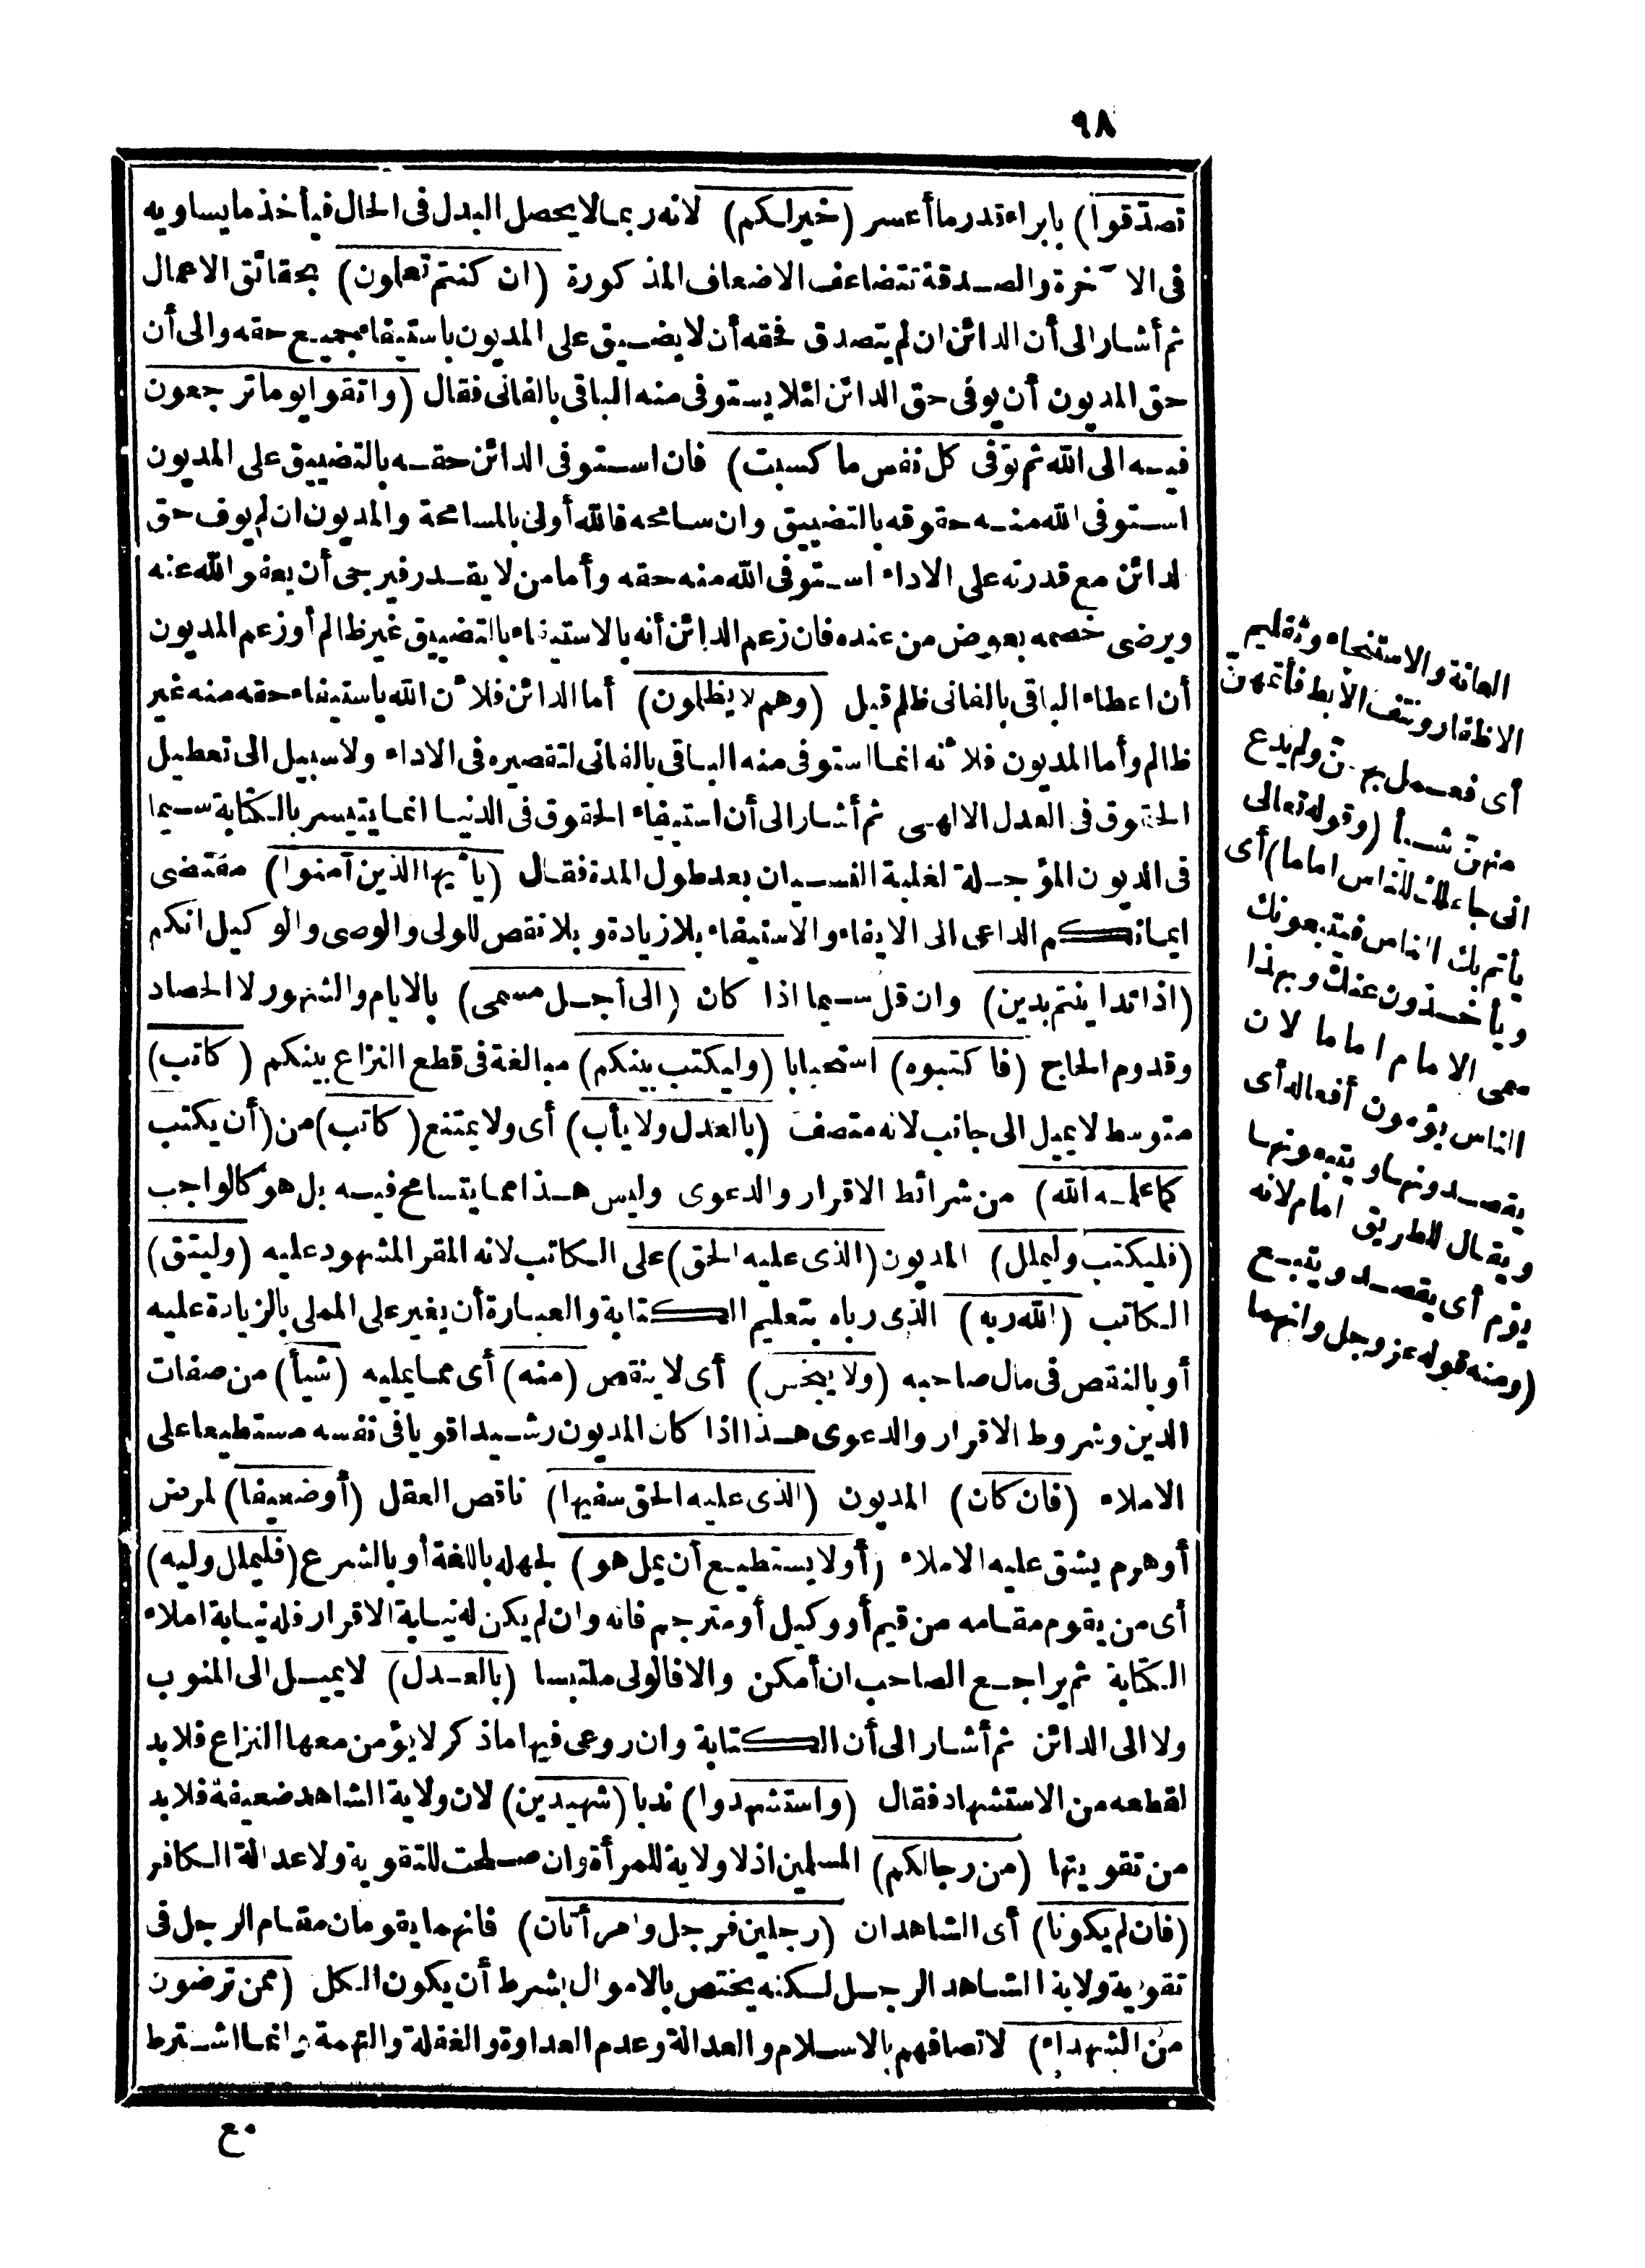 ٩٨
تصدقوا) بابراء قدر ما أعسر (خير لكم) لانه ربما لا يحصل البدل فى الحال فيأخذ ما يساويه
فى الآخرة والصدقة تتضاعف الاضعاف المذكورة (ان كنتم تعلمون) بحقائق الاعمال
ثم أشار الى أن الدائن ان لم يتصدق فحقه أن لا يضيق على المديون باستيفاء جميع حقه والى أن
حق المديون أن يوفى حق الدائن لئلا يستوفى منه الباقى بالفانى فقال (واتقوا يوما ترجعون
فيه الى الله ثم توفى كل نفس ما كسبت) فان استوفى الدائن حقه بالتضييق على المديون
استوفى الله منه حقوقه بالتضييق وان سامحه فالله أولى بالمسامحة والمديون ان لم يوف حق
لدائن مع قدرته على الاداء استوفى الله منه حقه وأما من لا يقدر فيرجى أن يعفو الله عنه
ويرضى خصمه بعوض من عنده فان زعم الدائن أنه بالاستيفاء بالتضييق غير ظالم أو زعم المديون
أن اعطاء الباقى بالفانى ظلم قيل (وهم لا يظلمون) أما الدائن فلأن الله باستيفاء حقه منه غير
ظالم وأما المديون فلأنه انما استوفى منه الباقى بالفانى لتقصيره فى الاداء ولا سبيل الى تعطيل
الحقوق فى العدل الالهى ثم أشار الى أن استيفاء الحقوق فى الدنيا انما يتيسر بالكتابة سيما
فى الديون المؤجلة لغلبة النسيان بعد طول المدة فقال (يا أيها الذين آمنوا) مقتضى
ايمانكم الداعى الى الايفاء والاستيفاء بلا زيادة وبلا نقص للولى والوصى والوكيل انكم
(اذا تداينتم بدين) وان قل سيما اذا كان (الى أجل مسمى) بالايام والشهور لا الحصاد
وقدوم الحاج (فاكتبوه) استحبابا (وليكتب بينكم) مبالغة فى قطع النزاع بينكم (كاتب)
متوسط لا يميل الى جانب لانه متصف (بالعدل ولا يأب) أى ولا يمتنع (كاتب) من (أن يكتب
كما علمه الله) من شرائط الاقرار والدعوى وليس هذا مما يتسامح فيه بل هو كالواجب
(فليكتب وليملل) المديون (الذى عليه الحق) على الكاتب لانه المقر المشهود عليه (وليتق)
الكاتب (الله ربه) الذى رباه بتعليم الكتابة والعبارة أن يغير على المملى بالزيادة عليه
أو بالنقص فى مال صاحبه (ولا يبخس) أى لا ينقص (منه) أى مما يمليه (شيأ) من صفات
الدين وشروط الاقرار والدعوى هذا اذا كان المديون رشيدا قويا فى نفسه مستطيعا على
الاملاء (فان كان) المديون (الذى عليه الحق سفيها) ناقص العقل (أو ضعيفا) لمرض
أو هرم يشق عليه الاملاء (أو لا يستطيع أن يمل هو) لجهله باللغة أو بالشرع (فليملل وليه)
أى من يقوم مقامه من قيم أو وكيل أو مترجم فانه وان لم يكن له نيابة الاقرار فله نيابة املاء
الكتابة ثم يراجع الصاحب ان أمكن والا فالولى ملتبسا (بالعدل) لا يميل الى المنوب
ولا الى الدائن ثم أشار الى أن الكتابة وان روعى فيها ما ذكر لا يؤمن معها النزاع فلا بد
لقطعه من الاستشهاد فقال (واستشهدوا) ندبا (شهيدين) لان ولاية الشاهد ضعيفة فلا بد
من تقويتها (من رجالكم) المسلمين اذ لا ولاية للمرأة وان صلحت للتقوية ولا عدالة للكافر
(فان لم يكونا) أى الشاهدان (رجلين فرجل وامرأتان) فانهما يقومان مقام الرجل فى
تقوية ولاية الشاهد الرجل لكنه يختص بالاموال بشرط أن يكون الكل (ممن ترضون
من الشهداء) لاتصافهم بالاسلام والعدالة وعدم العداوة والغفلة والتهمة وانما اشترط
العانة والاستنجاء وتقليم
الاظفار ونتف الابط فأتمهن
أى فعمل بهن ولم يدع
منهن شيأ (وقوله تعالى
انى جاعلك للناس اماما) أى
يأتم بك الناس فيتبعونك
ويأخذون عنك وبهذا
سمى الامام اماما لان
الناس يؤمون أفعاله أى
يقصدونها ويتبعونها
ويقال للطريق امام لانه
يؤم أى يقصد ويتبع
(ومنه قوله عز وجل وانهما